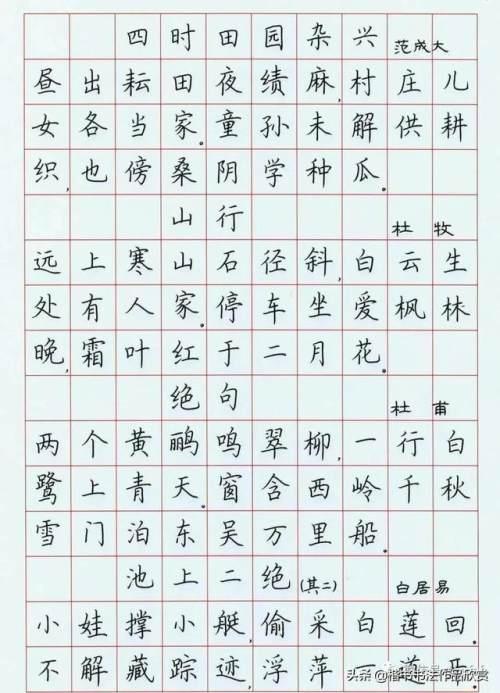 四时田园杂兴 范成大
昼出耘田夜绩麻,村庄儿
女各当家。童孙未解供耕
织,也傍桑阴学种瓜。
山行 杜牧
远上寒山石径斜,白云生
处有人家。停车坐爱枫林
晚,霜叶红于二月花。
绝句 杜甫
两个黄鹂鸣翠柳,一行白
鹭上青天。窗含西岭千秋
雪,门泊东吴万里船。
池上二绝(其二) 白居易
小娃撑小艇,偷采白莲回。
不解藏踪迹,浮萍一道开。
头条 @楷书书法作品欣赏